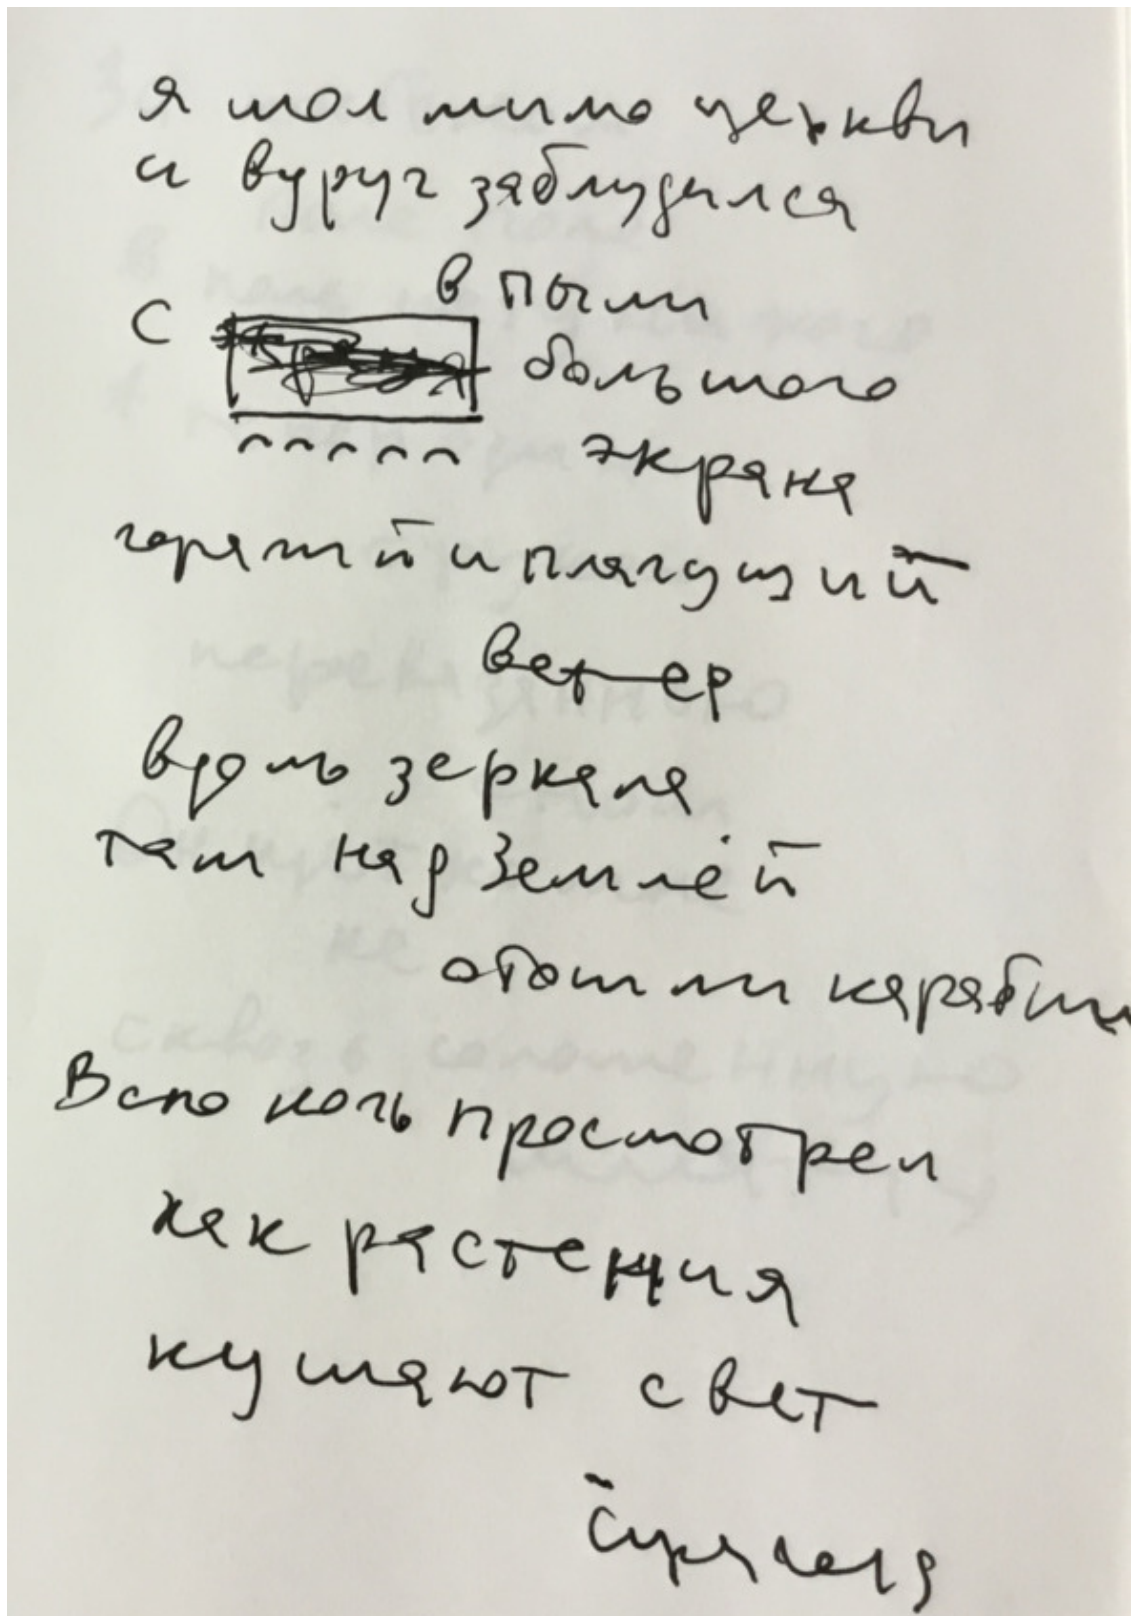 я шол мимо церкви
и вдруг заблудился
в пыли
с
большого
экрана
горячий и плачущий
ветер
вдоль зеркала
там над землёй
отошли карабли
Всю ночь просмотрел
как растения
кушают свет